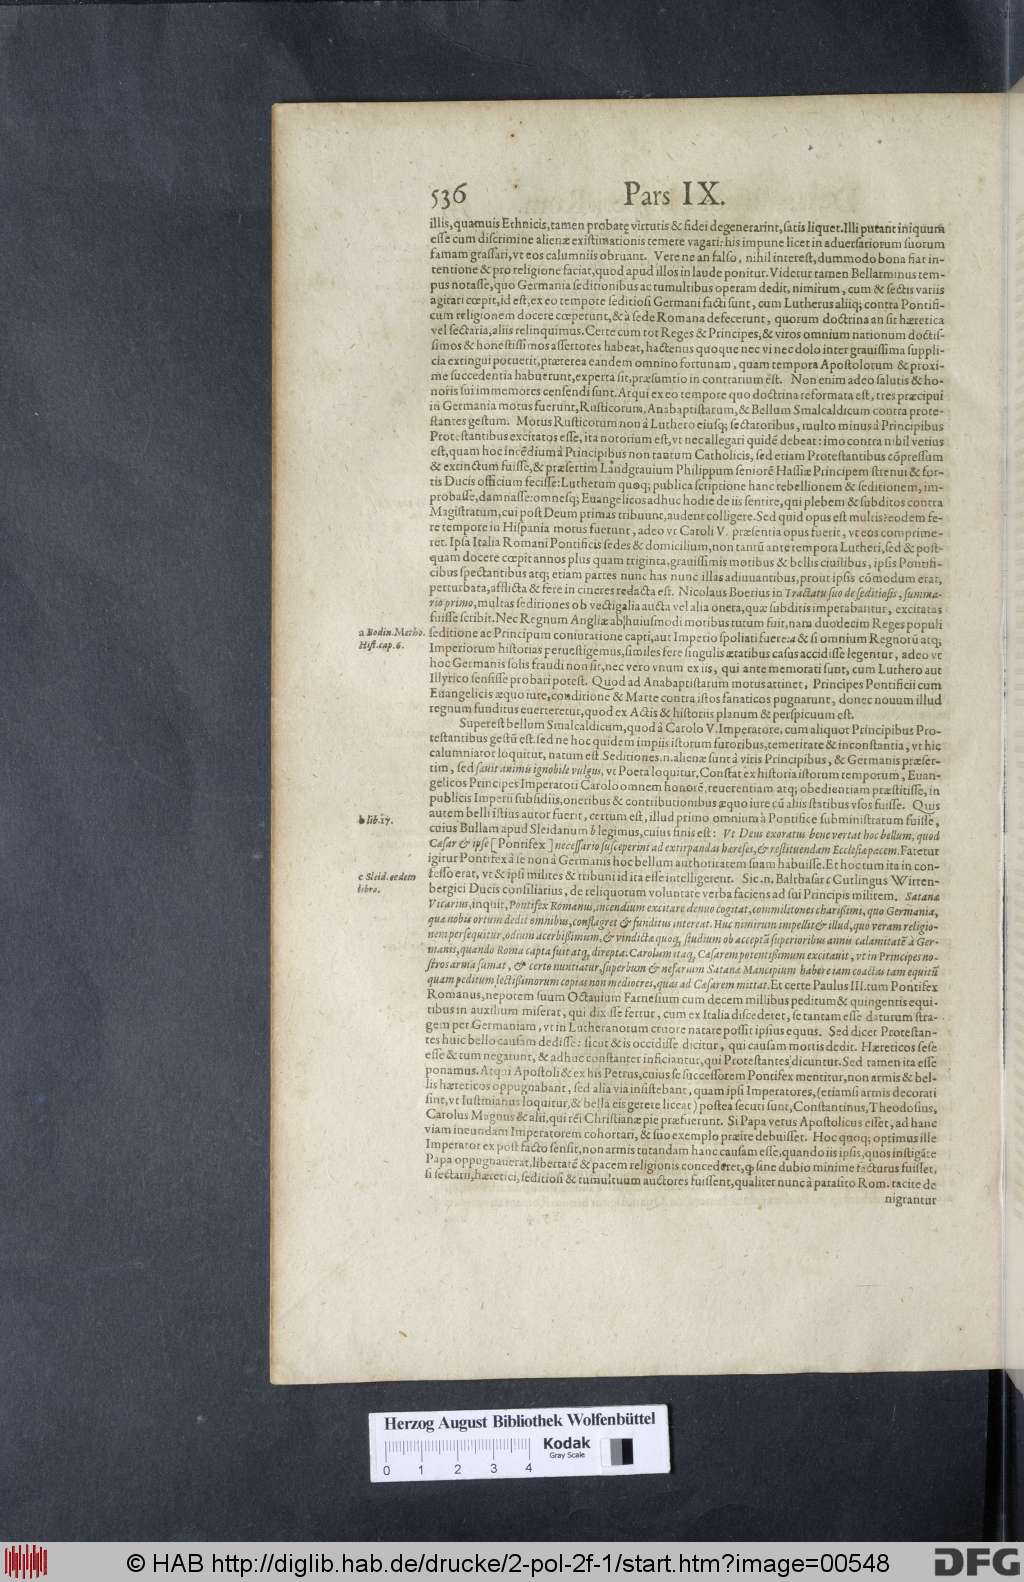 536 Pars IX.
illis, quamuis Ethnicis, tamen probatę virtutis & fidei degenerarint, satis liquet. Illi putant iniquum
esse cum discrimine alienæ existimationis temere vagari: his impune licet in aduersariorum suorum
famam grassari, vt eos calumniis obruant. Vere ne an falso, nihil interest, dummodo bona fiat in-
tentione & pro religione faciat, quod apud illos in laude ponitur. Videtur tamen Bellarminus tem-
pus notasse, quo Germania seditionibus ac tumultibus operam dedit, nimirum, cum & sectis variis
agitari cœpit, id est, ex eo tempore seditiosi Germani facti sunt, cum Lutherus aliiq; contra Pontifi-
cum religionem docere cœperunt, & à sede Romana defecerunt, quorum doctrina an sit hæretica
vel sectaria, aliis relinquimus. Certe cum tot Reges & Principes, & viros omnium nationum doctis-
simos & honestissimos assertores habeat, hactenus quoque nec vi nec dolo inter grauissima suppli-
cia extingui potuerit, præterea eandem omnino fortunam, quam tempora Apostolorum & proxi-
me succedentia habuerunt, experta sit, præsumtio in contrarium est. Non enim adeo salutis & ho-
noris sui immemores censendi sunt. Atqui ex eo tempore quo doctrina reformata est, tres præcipui
in Germania motus fuerunt, Rusticorum, Anabaptistarum, & Bellum Smalcaldicum contra prote-
stantes gestum. Motus Rusticorum non à Luthero eiusq; sectatoribus, multo minus à Principibus
Protestantibus excitatos esse, ita notorium est, vt nec allegari quidē debeat: imo contra nihil verius
est, quam hoc incēdium à Principibus non tantum Catholicis, sed etiam Protestantibus cōpressum
& extinctum fuisse, & præsertim Landgrauium Philippum seniorē Hassiæ Principem strenui & for-
tis Ducis officium fecisse: Lutherum quoq; publica scriptione hanc rebellionem & seditionem, im-
probasse, damnasse: omnesq; Euangelicos adhuc hodie de iis sentire, qui plebem & subditos contra
Magistratum, cui post Deum primas tribuunt, audent colligere. Sed quid opus est multis? eodem fe-
re tempore in Hispania motus fuerunt, adeo vt Caroli V. præsentia opus fuerit, vt eos comprime-
ret. Ipsa Italia Romani Pontificis sedes & domicilium, non tantū ante tempora Lutheri, sed & post-
quam docere cœpit annos plus quam triginta, grauissimis motibus & bellis ciuilibus, ipsis Pontifi-
cibus spectantibus atq; etiam partes nunc has nunc illas adiuuantibus, prout ipsis cōmodum erat,
perturbata, afflicta & fere in cineres redacta est. Nicolaus Boerius in Tractatu suo de seditiosis, summa-
rio primo, multas seditiones ob vectigalia aucta vel alia onera, quæ subditis imperabantur, excitatas
fuisse scribit. Nec Regnum Angliæ ab huiusmodi motibus tutum fuit, nam duodecim Reges populi
a Bodin. Metho. Hist. cap. 6.
seditione ac Principum coniuratione capti, aut Imperio spoliati fuere: a & si omnium Regnorū atq;
Imperiorum historias peruestigemus, similes fere singulis ætatibus casus accidisse legentur, adeo vt
hoc Germanis solis fraudi non sit, nec vero vnum ex iis, qui ante memorati sunt, cum Luthero aut
Illyrico sensisse probari potest. Quod ad Anabaptistarum motus attinet, Principes Pontificii cum
Euangelicis æquo iure, conditione & Marte contra istos fanaticos pugnarunt, donec nouum illud
regnum funditus euerteretur, quod ex Actis & historiis planum & perspicuum est.
Superest bellum Smalcaldicum, quod à Carolo V. Imperatore, cum aliquot Principibus Pro-
testantibus gestū est. sed ne hoc quidem impiis istorum furoribus, temeritate & inconstantia, vt hic
calumniator loquitur, natum est Seditiones. n. alienæ sunt à viris Principibus, & Germanis præser-
tim, sed sæuit animis ignobile vulgus, vt Poeta loquitur. Constat ex historia istorum temporum, Euan-
gelicos Principes Imperatori Carolo omnem honorē, reuerentiam atq; obedientiam præstitisse, in
publicis Imperii subsidiis, oneribus & contributionibus æquo iure cū aliis statibus vsos fuisse. Quis
b lib. 17.
autem belli istius autor fuerit, certum est, illud primo omnium à Pontifice subministratum fuisse,
cuius Bullam apud Sleidanum b legimus, cuius finis est: Vt Deus exoratus bene vertat hoc bellum, quod
Cæsar & ipse [Pontifex] necessario susceperint ad extirpandas hæreses, & restituendam Ecclesiæ pacem. Fatetur
igitur Pontifex à se non à Germanis hoc bellum authoritatem suam habuisse. Et hoc tum ita in con-
c Sleid. eodem libro.
fesso erat, vt & ipsi milites & tribuni id ita esse intelligerent. Sic. n. Balthasar c Gutlingus Wirten-
bergici Ducis consiliarius, de reliquorum voluntate verba faciens ad sui Principis militem. Satanæ
Vicarius, inquit, Pontifex Romanus, incendium excitare denuo cogitat, commilitones charissimi, quo Germania,
quæ nobis ortum dedit omnibus, conflagret & funditus intereat. Huc nimirum impellit & illud, quo veram religio-
nem persequitur, odium acerbissimum, & vindictæ quoq, studium ob acceptā superioribus annis calamitatē à Ger-
manis, quando Roma capta fuit atq, direpta. Carolum itaq, Cæsarem potentissimum excitauit, vt in Principes no-
stros arma sumat, & certo nuntiatur, superbum & nefarium Satanæ Mancipium habere iam coactas tam equitū
quam peditum lectissimorum copias non mediocres, quas ad Cæsarem mittat. Et certe Paulus III. tum Pontifex
Romanus, nepotem suum Octauium Farnesium cum decem millibus peditum & quingentis equi-
tibus in auxilium miserat, qui dixisse fertur, cum ex Italia discederet, se tantam esse daturum stra-
gem per Germaniam, vt in Lutheranorum cruore natare possit ipsius equus. Sed dicet Protestan-
tes huic bello causam dedisse: sicut & is occidisse dicitur, qui causam mortis dedit. Hæreticos sese
esse & tum negarunt, & adhuc constanter inficiantur, qui Protestantes dicuntur. Sed tamen ita esse
ponamus. Atqui Apostoli & ex his Petrus, cuius se successorem Pontifex mentitur, non armis & bel-
lis hæreticos oppugnabant, sed alia via insistebant, quam ipsi Imperatores, (etiamsi armis decorati
sint, vt Iustinianus loquitur, & bella eis gerere liceat) postea secuti sunt, Constantinus, Theodosius,
Carolus Magnus & alii, qui rei Christianæ pie præfuerunt. Si Papa verus Apostolicus esset, ad hanc
viam ineundam Imperatorem cohortari, & suo exemplo præire debuisset. Hoc quoq; optimus ille
Imperator ex post facto sensit, non armis tutandam hanc causam esse, quando iis ipsis, quos instigāte
Papa oppugnauerat, libertatē & pacem religionis concederet, qđ sine dubio minime facturus fuisset,
si sectarii, hæretici, seditiosi & tumultuum auctores fuissent, qualiter nunc à parasito Rom. tacite de
nigrantur
Herzog August Bibliothek Wolfenbüttel
Kodak
Gray Scale
0 1 2 3 4
© HAB http://diglib.hab.de/drucke/2-pol-2f-1/start.htm?image=00548
DFG